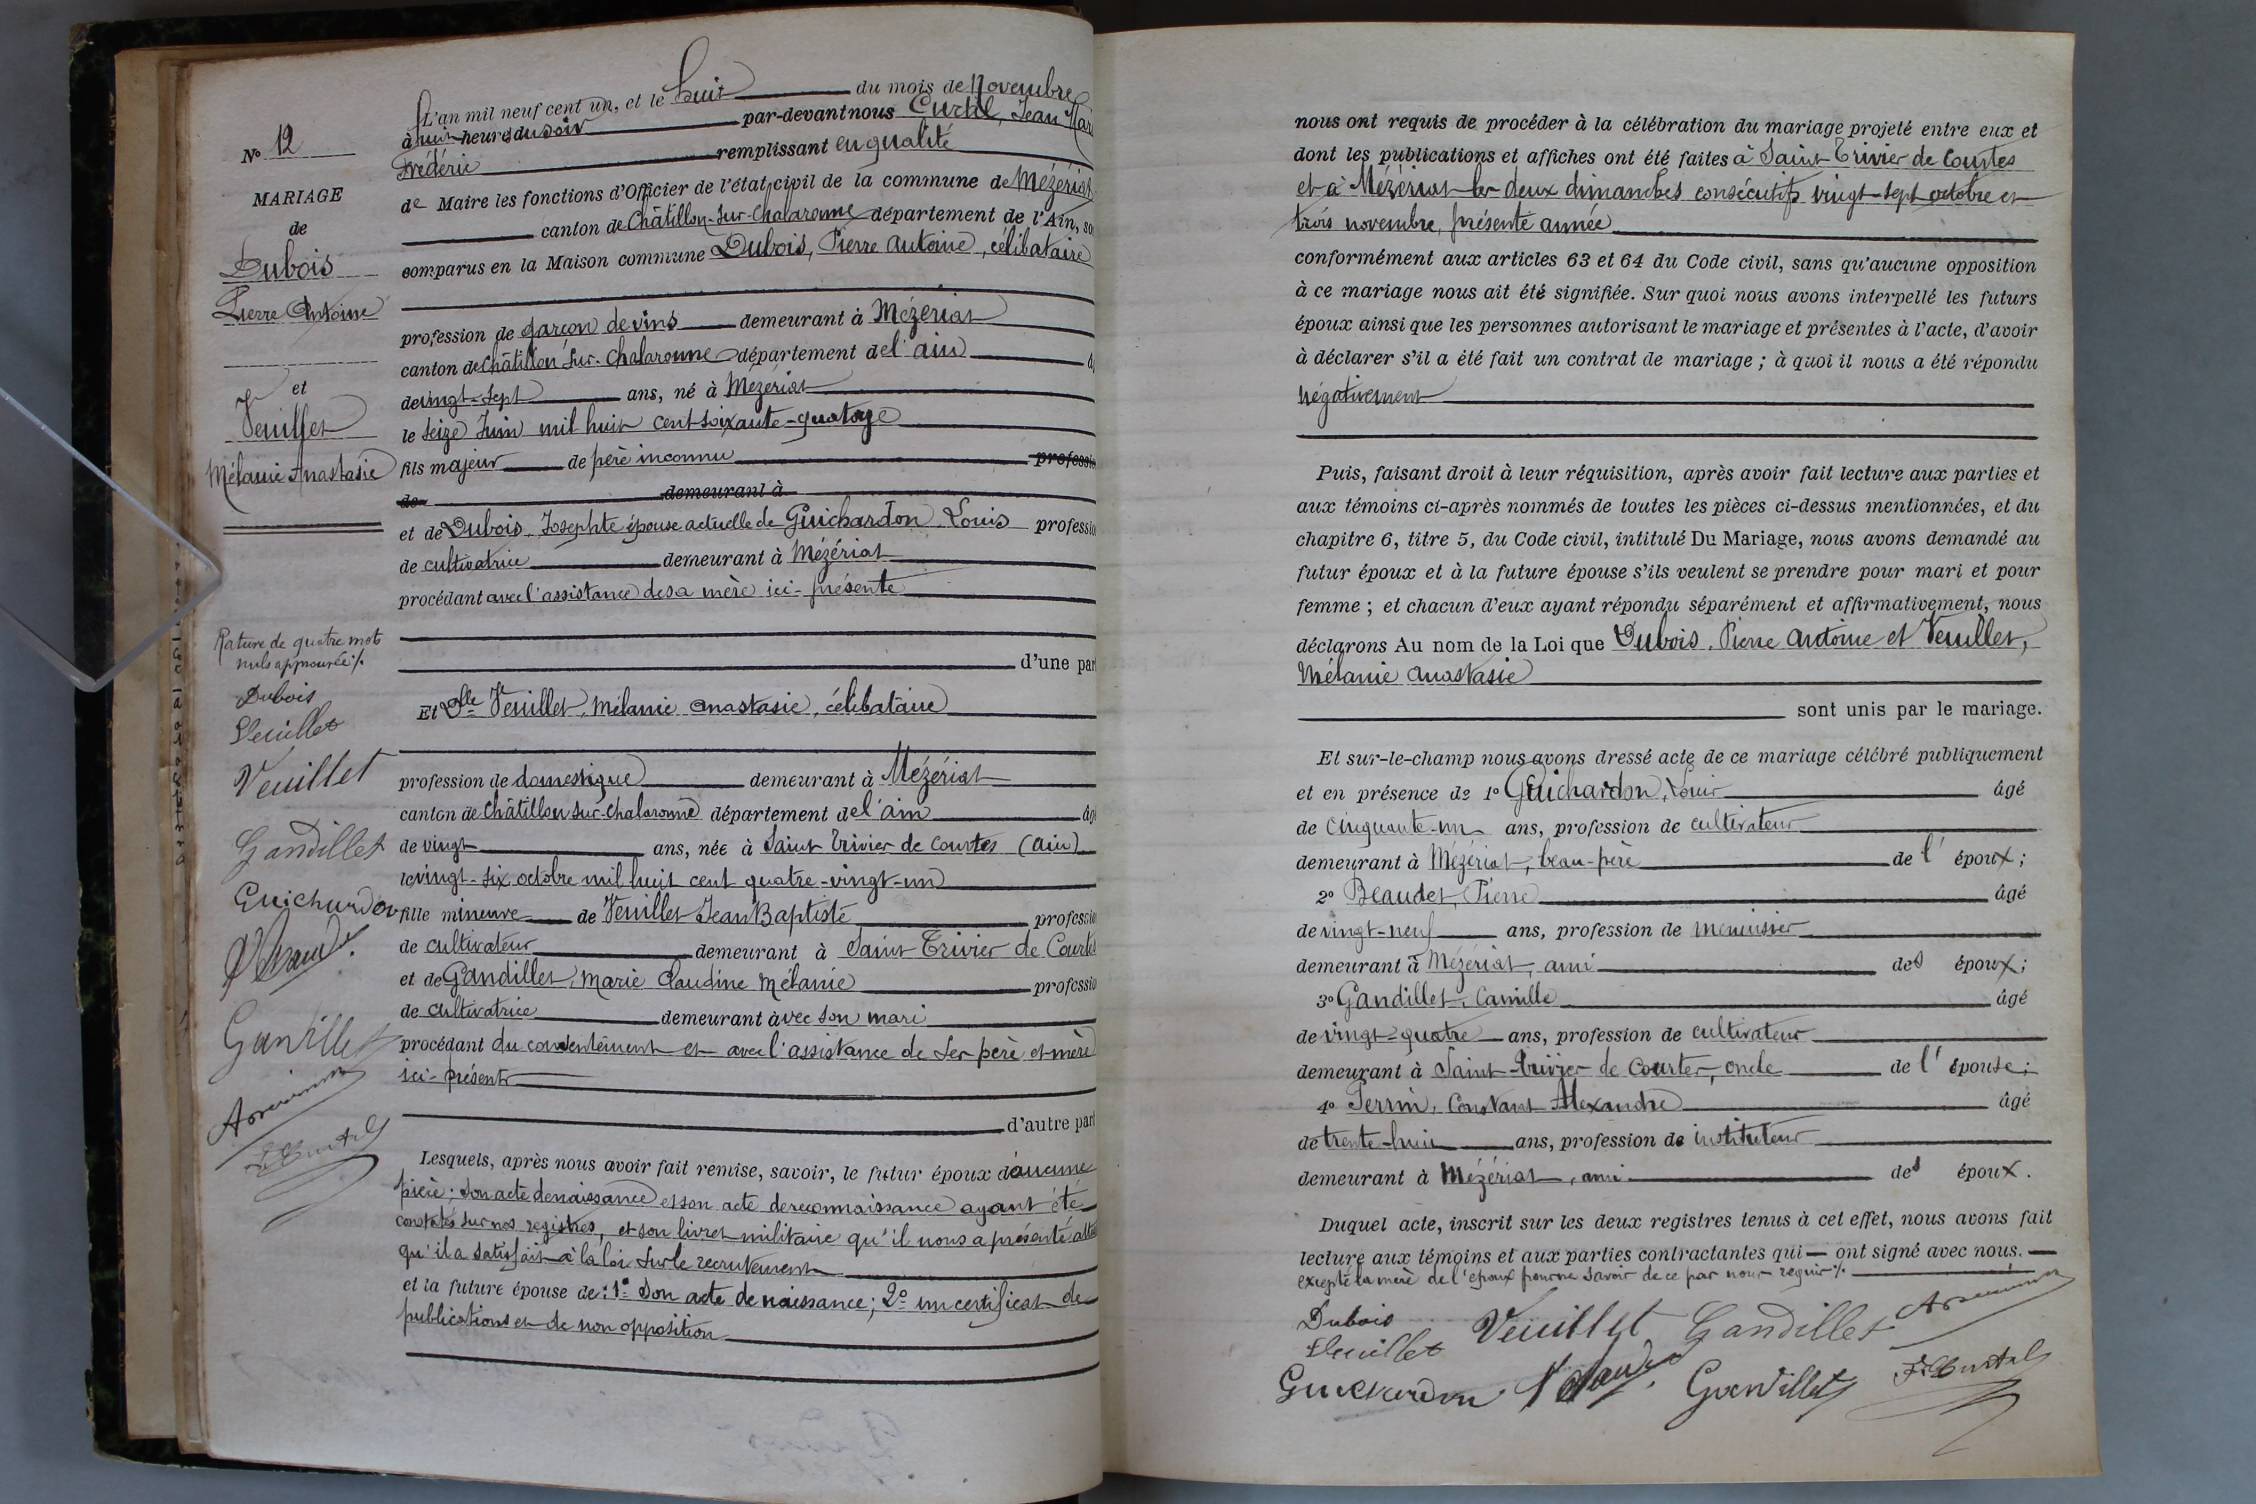 N° 12
MARIAGE
de
Dubois
Pierre Antoine
et
Veuillet
Mélanie Anastasie
Rature de quatre mots
nuls approuvée ./.
Dubois
Veuillet
Veuillet
Gandillet
Guichardon
Gandillet
L'an mil neuf cent un, et le huit du mois de Novembre
à huit heures du soir par-devant nous Curtil, Jean Mar
Frédéric remplissant en qualité
de Maire les fonctions d'Officier de l'état civil de la commune de Mézériat
canton de Châtillon-sur-Chalaronne département de l'Ain, so
comparus en la Maison commune Dubois, Pierre Antoine, célibataire
profession de garçon de vins demeurant à Mézériat
canton de Châtillon sur Chalaronne département de l'ain
de vingt-sept ans, né à Mézériat
le seize Juin mil huit cent soixante-quatorze
fils majeur de père inconnu professio
de demeurant à
et de Dubois Josephte épouse actuelle de Guichardon Louis professio
de cultivatrice demeurant à Mézériat
procédant avec l'assistance de sa mère ici-présente
d'une par
Et Dlle Veuillet, Mélanie Anastasie, célibataire
profession de domestique demeurant à Mézériat
canton de Châtillon sur-Chalaronne département de l'ain âg
de vingt ans, née à Saint Trivier de Courtes (ain)
le vingt-six octobre mil huit cent quatre-vingt-un
fille mineure de Veuillet Jean Baptiste professio
de cultivateur demeurant à Saint Trivier de Courtes
et de Gandillet, Marie Claudine Mélanie professio
de cultivatrice demeurant avec son mari
procédant du consentement et avec l'assistance de ses père et mère
ici-présents
d'autre part
Lesquels, après nous avoir fait remise, savoir, le futur époux d'aucune
pièce; son acte de naissance et son acte de reconnaissance ayant été
constatés sur nos registres, et son livret militaire qu'il nous a présenté atte
qu'il a satisfait à la loi sur le recrutement
et la future épouse de: 1° Son acte de naissance; 2° un certificat de
publications et de non opposition
nous ont requis de procéder à la célébration du mariage projeté entre eux et
dont les publications et affiches ont été faites à Saint-Trivier de Courtes
et à Mézériat les deux dimanches consécutifs vingt-sept octobre et
trois novembre, présente année
conformément aux articles 63 et 64 du Code civil, sans qu'aucune opposition
à ce mariage nous ait été signifiée. Sur quoi nous avons interpellé les futurs
époux ainsi que les personnes autorisant le mariage et présentes à l'acte, d'avoir
à déclarer s'il a été fait un contrat de mariage; à quoi il nous a été répondu
négativement
Puis, faisant droit à leur réquisition, après avoir fait lecture aux parties et
aux témoins ci-après nommés de toutes les pièces ci-dessus mentionnées, et du
chapitre 6, titre 5, du Code civil, intitulé Du Mariage, nous avons demandé au
futur époux et à la future épouse s'ils veulent se prendre pour mari et pour
femme; et chacun d'eux ayant répondu séparément et affirmativement, nous
déclarons Au nom de la Loi que Dubois, Pierre Antoine et Veuillet,
Mélanie Anastasie
sont unis par le mariage.
Et sur-le-champ nous avons dressé acte de ce mariage célébré publiquement
et en présence de 1° Guichardon, Louis âgé
de cinquante-un ans, profession de cultivateur
demeurant à Mézériat, beau-père de l'époux;
2° Beaudet, Pierre âgé
de vingt-neuf ans, profession de menuisier
demeurant à Mézériat, ami des époux;
3° Gandillet, Camille âgé
de vingt-quatre ans, profession de cultivateur
demeurant à Saint-Trivier de Courtes, oncle de l'épouse;
4° Perrin, Constant Alexandre âgé
de trente-huit ans, profession de instituteur
demeurant à Mézériat, ami des époux.
Duquel acte, inscrit sur les deux registres tenus à cet effet, nous avons fait
lecture aux témoins et aux parties contractantes qui ont signé avec nous.
excepté la mère de l'époux pour ne savoir de ce par nous requis ./.
Dubois Veuillet Gandillet
Veuillet
Guichardon Gandillet F. Curtil